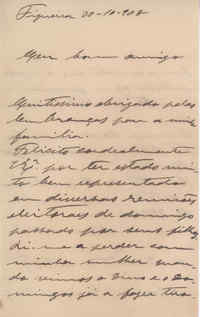 Figueira 20-10-908
Meu bom amigo
Muitissimo obrigado pelas
lembranças para a m.ª
familia.
Felicito cordealmente
V. Ex.ª por ter estado mui-
to bem representado
em diversas reuniões
eleitoraes de domingo
passado por seus filhos
Di-me a perder com
minha mulher
vimos a Deus e o Do-
mingos já a fazer